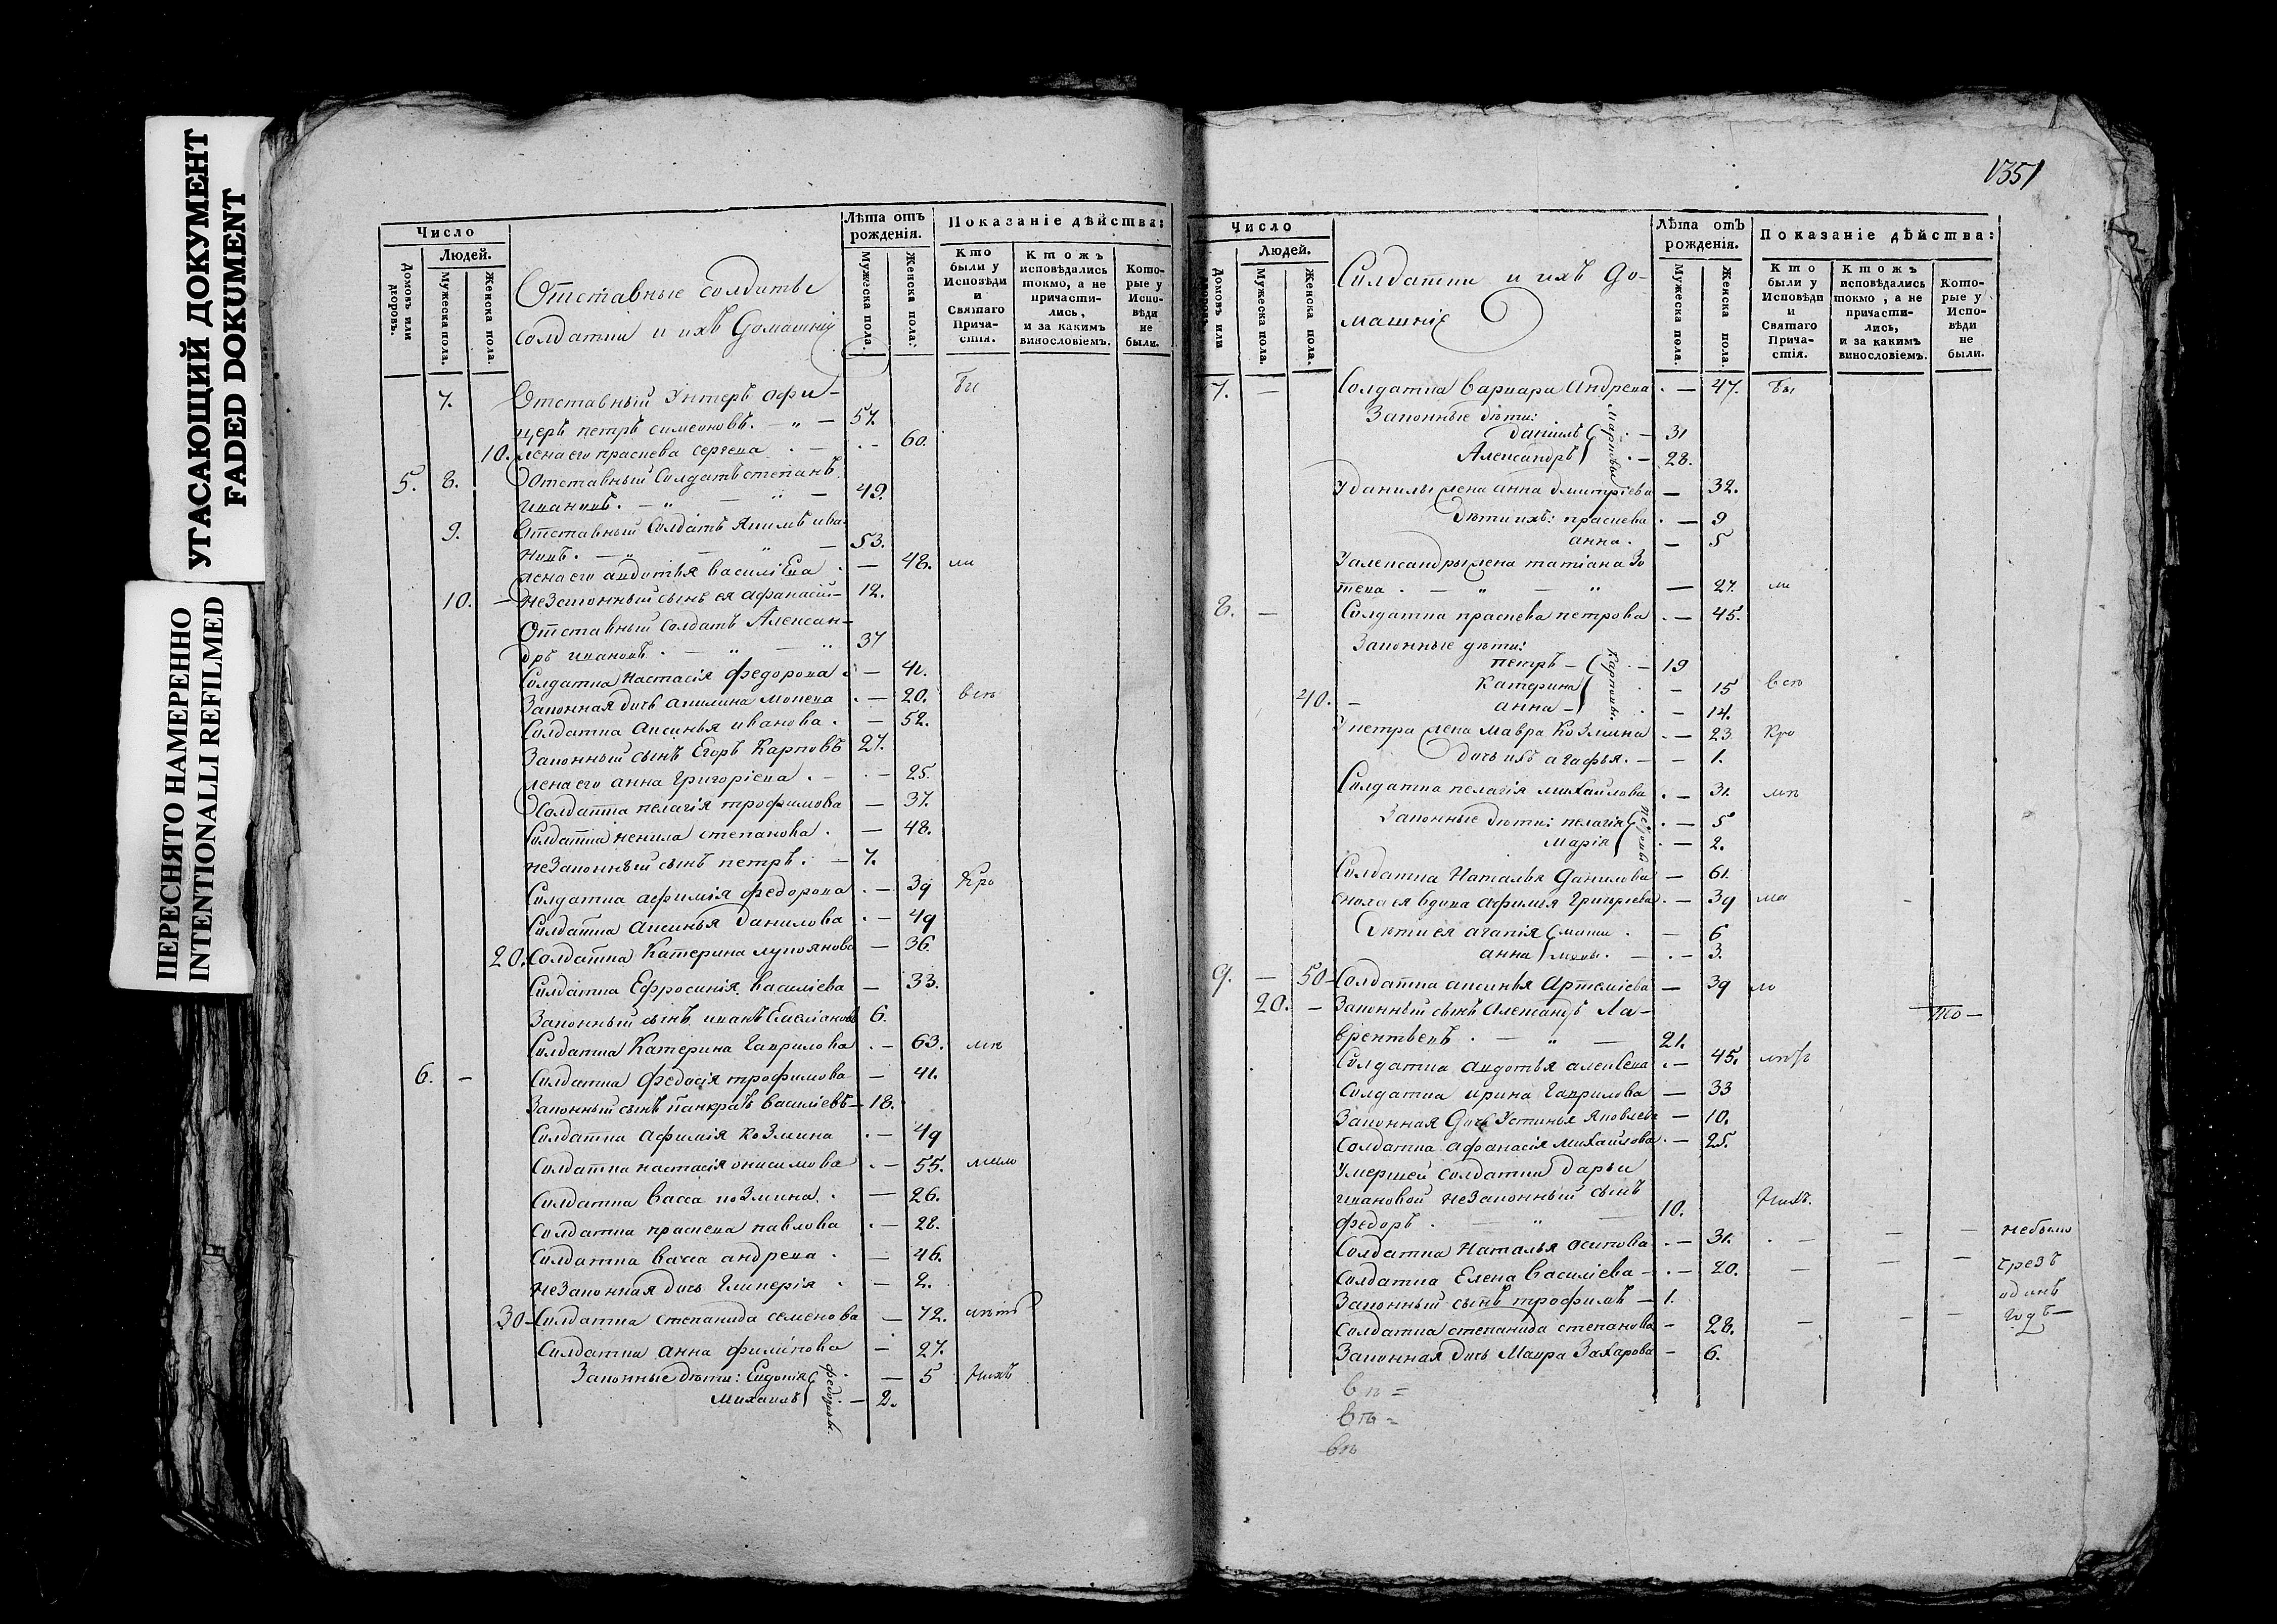 УГАСАЮЩИЙ ДОКУМЕНТ
FADED DOKUMENT
ПЕРЕСНЯТО НАМЕРЕННО
INTENTIONALLI REFILMED
Число
Людей.
Домовъ или дворовъ.
Мужеска пола.
Женска пола.
Отставные солдаты
солдатки и ихъ домашнія
Лѣта отъ рожденія.
Мужеска пола.
Женска пола.
Показаніе дѣйства:
Кто были у Исповѣди и Святаго Причастія.
Ктожъ исповѣдались токмо, а не причастились, и за какимъ винословіемъ.
Которые у Исповѣди не были.
7. Отставный Унтеръ офи- бы
церъ петръ симеоновъ. — „ — 57.
10. жена его праскева сергева . — . — 60.
5. 8. Отставный Солдатъ степанъ
ивановъ. — „ — „ — 49.
9. Отставный Солдатъ Якимъ ива-
новъ. — „ — „ — 53.
жена его авдотья василіева . — 48. ли
10. — незаконный сынъ ея афанасій — 12.
Отставный Солдатъ Алексан-
дръ ивановъ . — „ — „ 37
Солдатка настасія федорова . — 41.
Законная дочь акилина мокева . — 20. всъ
Солдатка аксинья иванова . — 52.
Законный сынъ Егоръ Карповъ 27.
жена его анна григоріева . — . — 25.
Солдатка пелагія трофимова — 37.
Солдатка ненила степанова . — 48.
незаконный сынъ петръ . — 7.
Солдатка афимія федорова . — 39 Кро
Солдатка аксинья данилова . — 49
20. Солдатка Катерина лукоянова — 36.
Солдатка Ефросинія василіева — 33.
Законный сынъ иванъ Емеліановъ 6.
Солдатка Катерина гаврилова . — 63. мп
6. — Солдатка федосія трофимова — 41.
Законный сынъ панкратъ василіевъ — 18.
Солдатка афимія козмина . — 49
Солдатка настасія онисимова . — 55.
Солдатка васса козмина . — 26.
Солдатка праскева павлова . — 28.
Солдатка васса андрева . — 46.
незаконная дочь гликерія . — 2.
30 — Солдатка степанида семенова — 72.
Солдатка анна филипова — 27.
Законные дѣти: Евдокія . — 5 нихъ
михаилъ федоровы. — 2.
1351
Число
Людей.
Домовъ или
Мужеска пола.
Женска пола.
Солдатки и ихъ до-
машніе
Лѣта отъ рожденія.
Мужеска пола.
Женска пола.
Показаніе дѣйства:
Кто были у Исповѣди и Святаго Причастія.
Ктожъ исповѣдались токмо, а не причастились, и за какимъ винословіемъ.
Которые у Исповѣди не были.
7. — Солдатка варвара андрева . — 47. бы
Законные дѣти:
данилъ . — 31
Александръ . — 28.
У данилы жена анна дмитріева — 32.
дѣти ихъ: праскева . — 9
анна . — 5
У александры жена татіана Зо
това . — „ — „ — 27. ли
8. — Солдатка праскева петрова . — 45.
Законные дѣти:
петръ — Карповы. . — 19
Катерина . — 15 всъ
40. — анна — . — 14.
У петра жена мавра Козмина . — 23. Кро
дочь ихъ агафья . — — 1.
Солдатка пелагія михайлова . — 31. мп
Законные дѣти: пелагія . — 5
марія . — 2.
Солдатка Наталья данилова — 61.
сноха ея вдова афимья григорьева . — 39
Дѣти ея агапія . — 6
анна . — . — 3.
9. — 50 — Солдатка аксинья Артеміева — 39 ло
20. — Законный сынъ Алежандръ Ла- то —
врентьевъ . — „ — 21.
Солдатка авдотья алексева . — 45.
Солдатка ирина гаврилова — 33
Законная Дочь Устинья Яковлева — 10.
Солдатка афанасія михайлова . — 25.
Умершей солдатки дарьи
ивановой незаконный сынъ нихъ.
федоръ . — „ — 10.
Солдатка Наталья осипова . — 31. . — — — небыли
Солдатка Елена василіева — . — 20. — — — чрезъ
Законный сынъ трофимъ — 1. одинъ
Солдатка степанида степанова — 28. — — — годъ —
Законная дочь Мавра Захарова — 6.